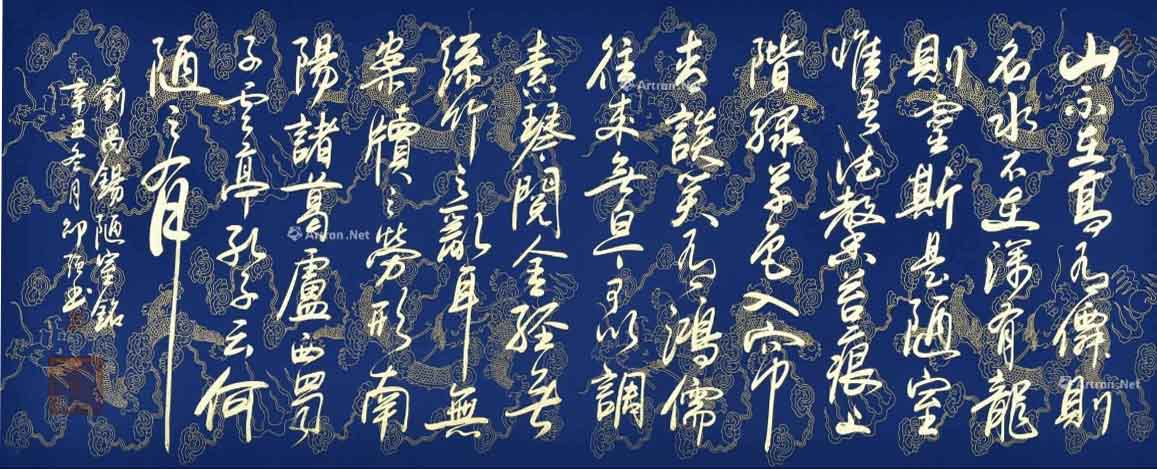 山不在高有僊則
名水不在深有龍
則靈斯是陋室
惟吾德馨苔痕上
階綠草色入帘
青談笑有鴻儒
往來無白丁可以調
素琴閱金經無
絲竹之亂耳無
案牘之勞形南
陽諸葛盧西蜀
子云亭孔子云何
陋之有
劉禹錫陋室銘
辛丑冬月書
Artron.Net
Artron.Net
Artron.Net
Artron.Net